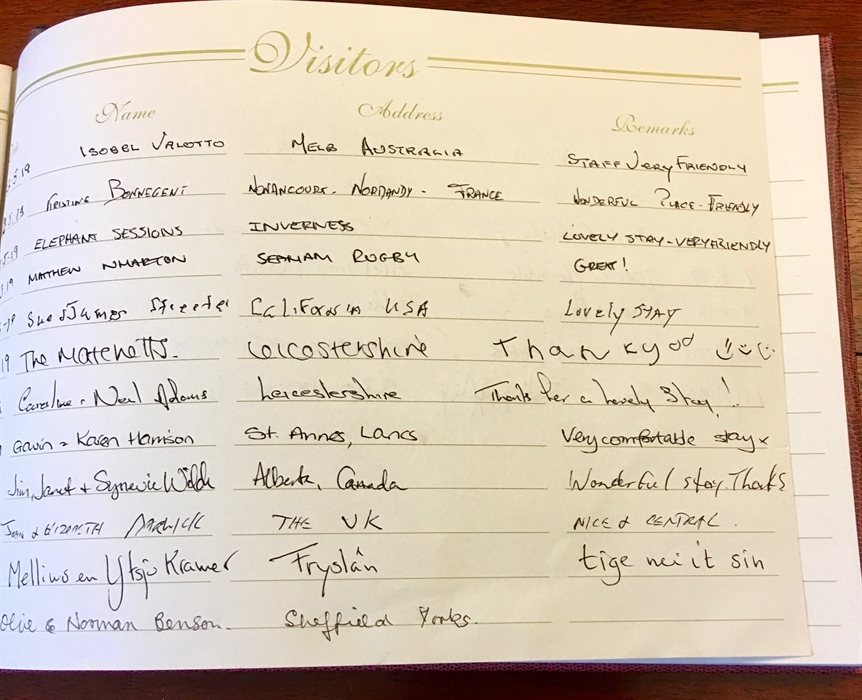 Visitors
Name Address Remarks
5.19 ISOBEL VALOTTO MELB AUSTRALIA STAFF VERY FRIENDLY
BONNEGENT NONANCOURT - NORMANDY - FRANCE WONDERFUL PLACE - FRIENDLY
5-19 ELEPHANT SESSIONS INVERNESS LOVELY STAY - VERY FRIENDLY
19 MATHEW WHARTON RUGBY GREAT!
-19 Sue & James Streeter California USA Lovely STAY
19 The Leicestershire Thank you
Caroline & Neil Adams Leicestershire Thanks for a lovely stay!
Gavin & Karen Harrison St. Annes, Lancs Very comfortable stay x
Jim, Janet & Alberta, Canada Wonderful stay. Thanks
JOHN & THE UK NICE & CENTRAL.
en Ytsje Kramer Fryslân tige nei it sin
Olive & Norman Benson. Sheffield Yorks.